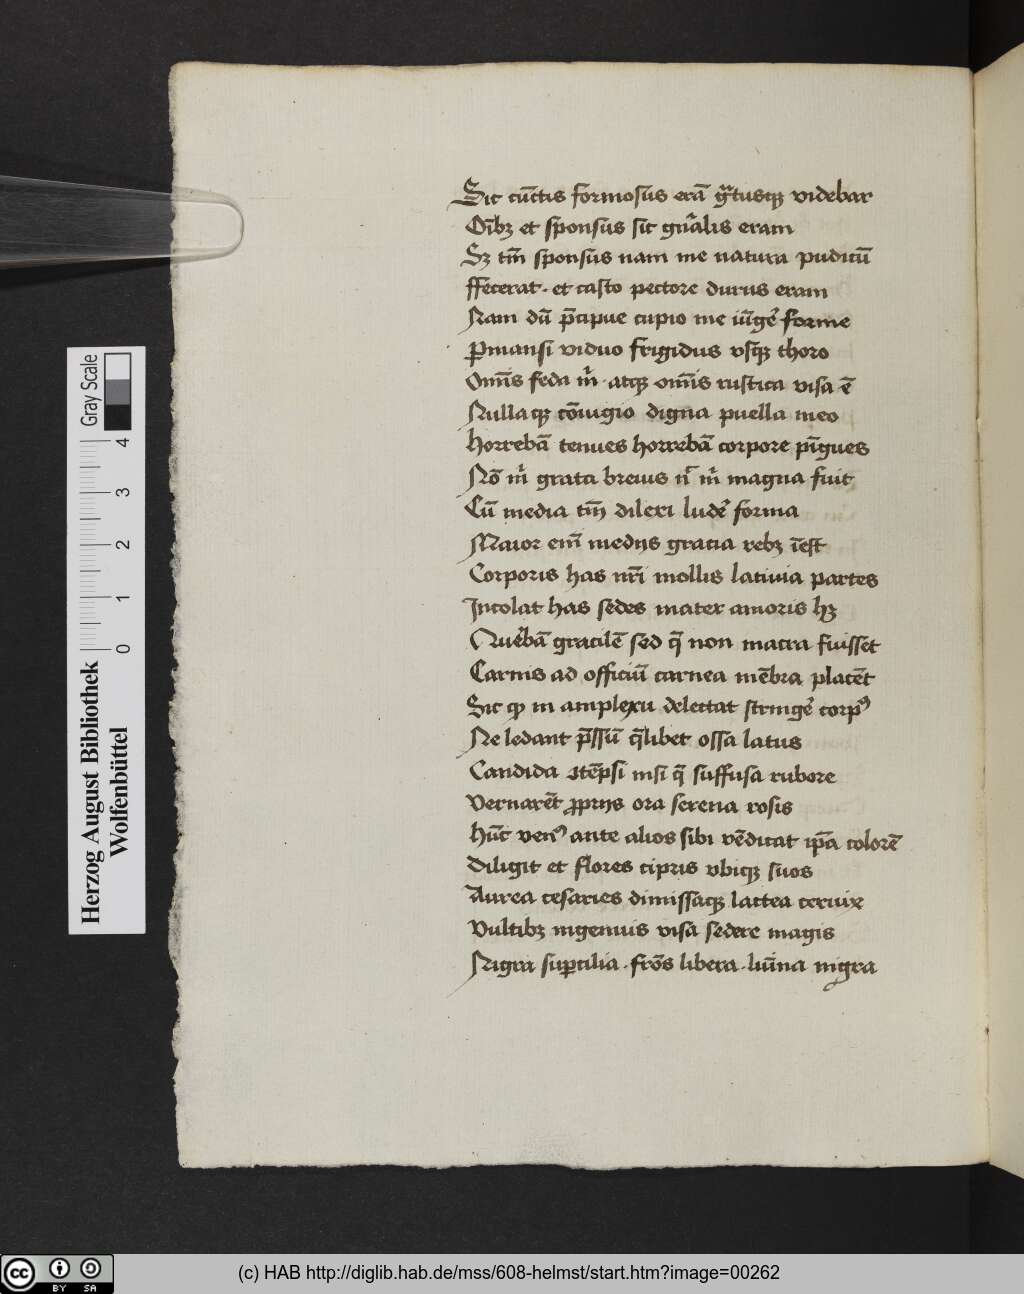 Sic cūctis formosus erā gr̄tusqꝫ videbar
Oībꝫ et sponsus sit gn̄alis eram
Sꝫ tm̄ sponsus nam me natura pudicū
ffecerat · et casto pectore durus eram
Nam dū p̄cipue cupio me iūge forme
ꝑmansi viduo frigidus vsqꝫ thoro
Omīs feda m̄ · atqꝫ omīs rustica visa ē
Nullaqꝫ cōiugio digna puella meo
horrebā tenues horrebā corpore pīgues
Nō m̄ grata breuis n̄ m̄ magna fuit
Cū media tm̄ dilexi lude forma
Maior eni̅ medijs gracia rebꝫ īest
Corporis has nr̄i mollis lasciuia partes
Incolat has sedes mater amoris hꝫ
Querebā gracilē sed q̄ non macra fuisset
Carnis ad officiū carnea mēbra placēt
Sit qꝫ in amplexu delectat stringe corpꝰ
Ne ledant p̄ssū q̄libet ossa latus
Candida ꝯtēpsi nisi q̄ suffusa rubore
Vernarēt ꝓprijs ora serena rosis
hūc venꝰ ante alios sibi vēdicat ip̄a colorē
Diligit et flores cipris vbiqꝫ suos
Aurea cesaries dimissaqꝫ lactea ceruix
Vultibꝫ ingenuis visa sedere magis
Nigra suꝑcilia · frōs libera · lūīna nigra
Gray Scale
0 1 2 3 4
Herzog August Bibliothek
Wolfenbüttel
cc BY SA
(c) HAB http://diglib.hab.de/mss/608-helmst/start.htm?image=00262